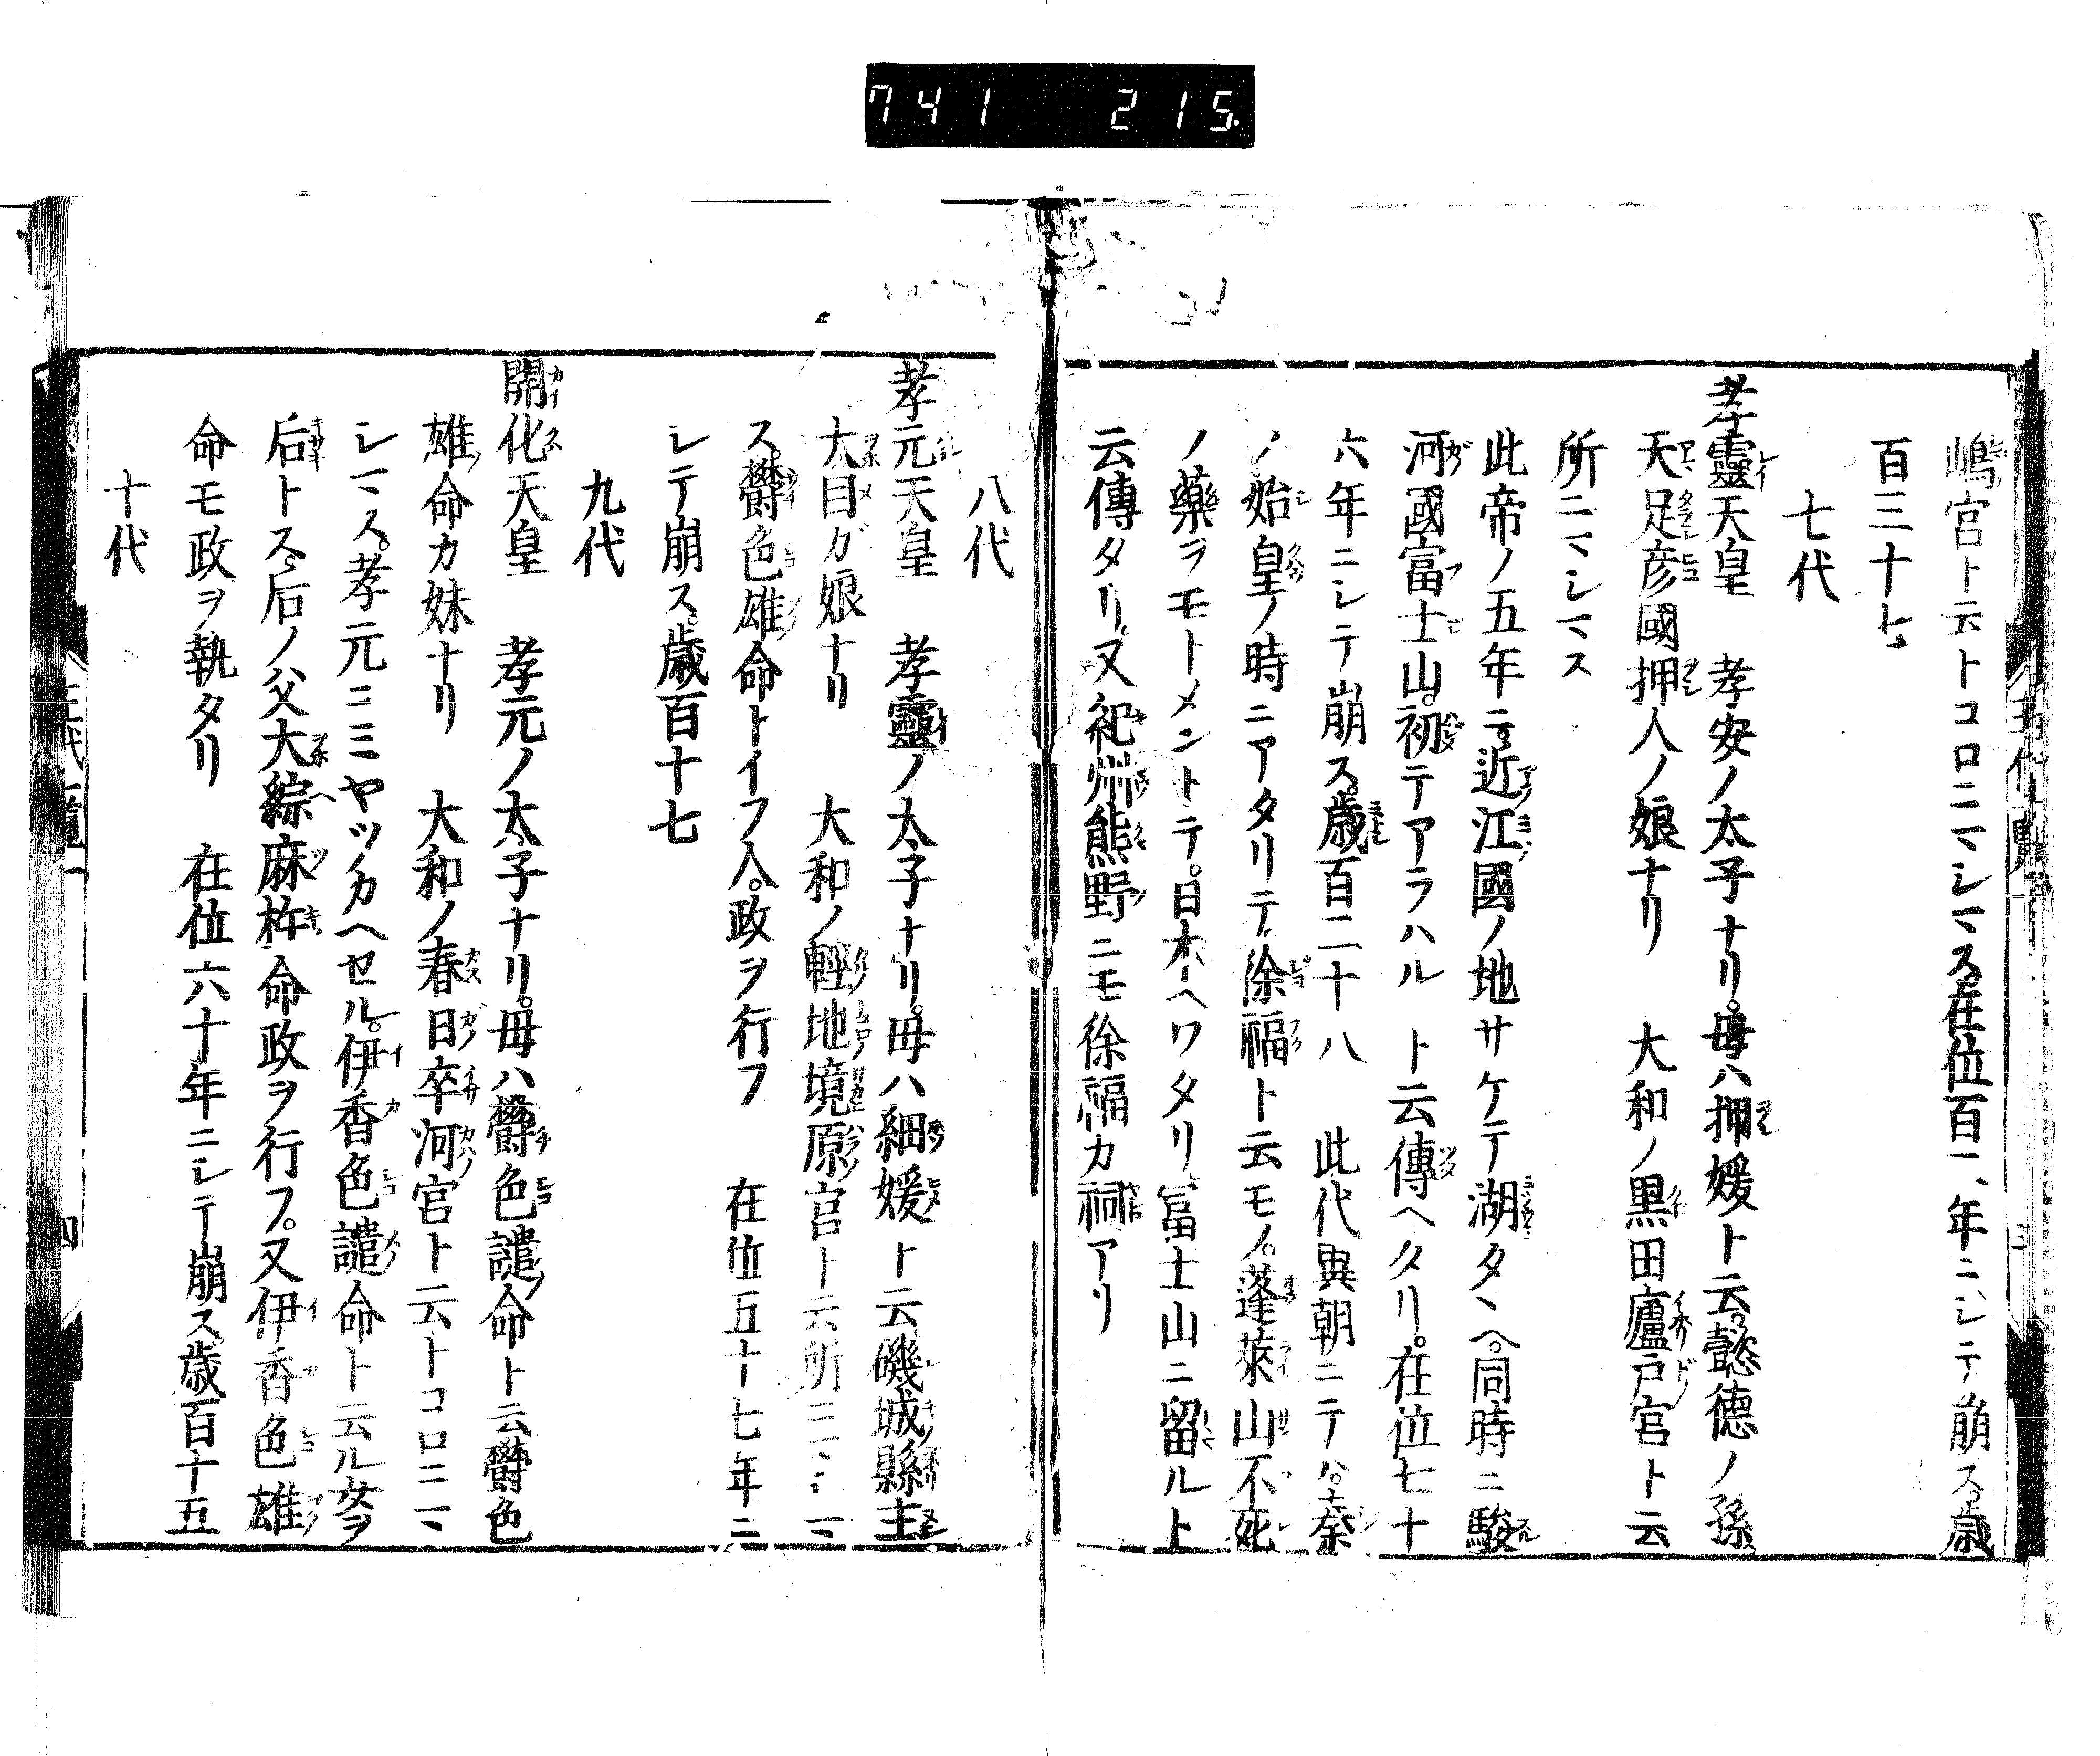 741 215.
嶋宮ト云トコロニマシマス。在位百一、年ニシテ崩ス。歳
百三十七
七代
孝靈天皇　孝安ノ太子ナリ。母ハ押媛ト云。懿徳ノ孫
天足彦國押人ノ娘ナリ　大和ノ黒田廬戸宮ト云
所ニマシマス
此帝ノ五年ニ。近江國ノ地サケテ湖タヽヘ。同時ニ駿
河國富士山。初テアラハルト云傳ヘタリ。在位七十
六年ニシテ崩ス。歳百二十八　此代異朝ニテハ。秦
ノ始皇ノ時ニアタリテ。徐福ト云モノ。蓬萊山不死
ノ藥ヲモトメントテ。日本ヘワタリ。冨士山ニ留ルト
云傳タリ。又紀州熊野ニモ徐福カ祠アリ
八代
孝元天皇　孝靈ノ太子ナリ。母ハ細媛ト云磯城縣主
大目ガ娘ナリ　大和ノ輕地境原宮ト云所ニマシマ
ス。欝色雄命トイフ人。政ヲ行フ　在位五十七年ニ
シテ崩ス。歳百十七
九代
開化天皇　孝元ノ太子ナリ。母ハ欝色謎命ト云欝色
雄命カ妹ナリ　大和ノ春日卒河宮ト云トコロニマ
シマス。孝元ニミヤツカヘセル。伊香色謎命ト云ル女ヲ
后トス。后ノ父大綜麻杵命政ヲ行フ。又伊香色雄
命モ政ヲ執タリ　在位六十年ニシテ崩ス。歳百十五
十代